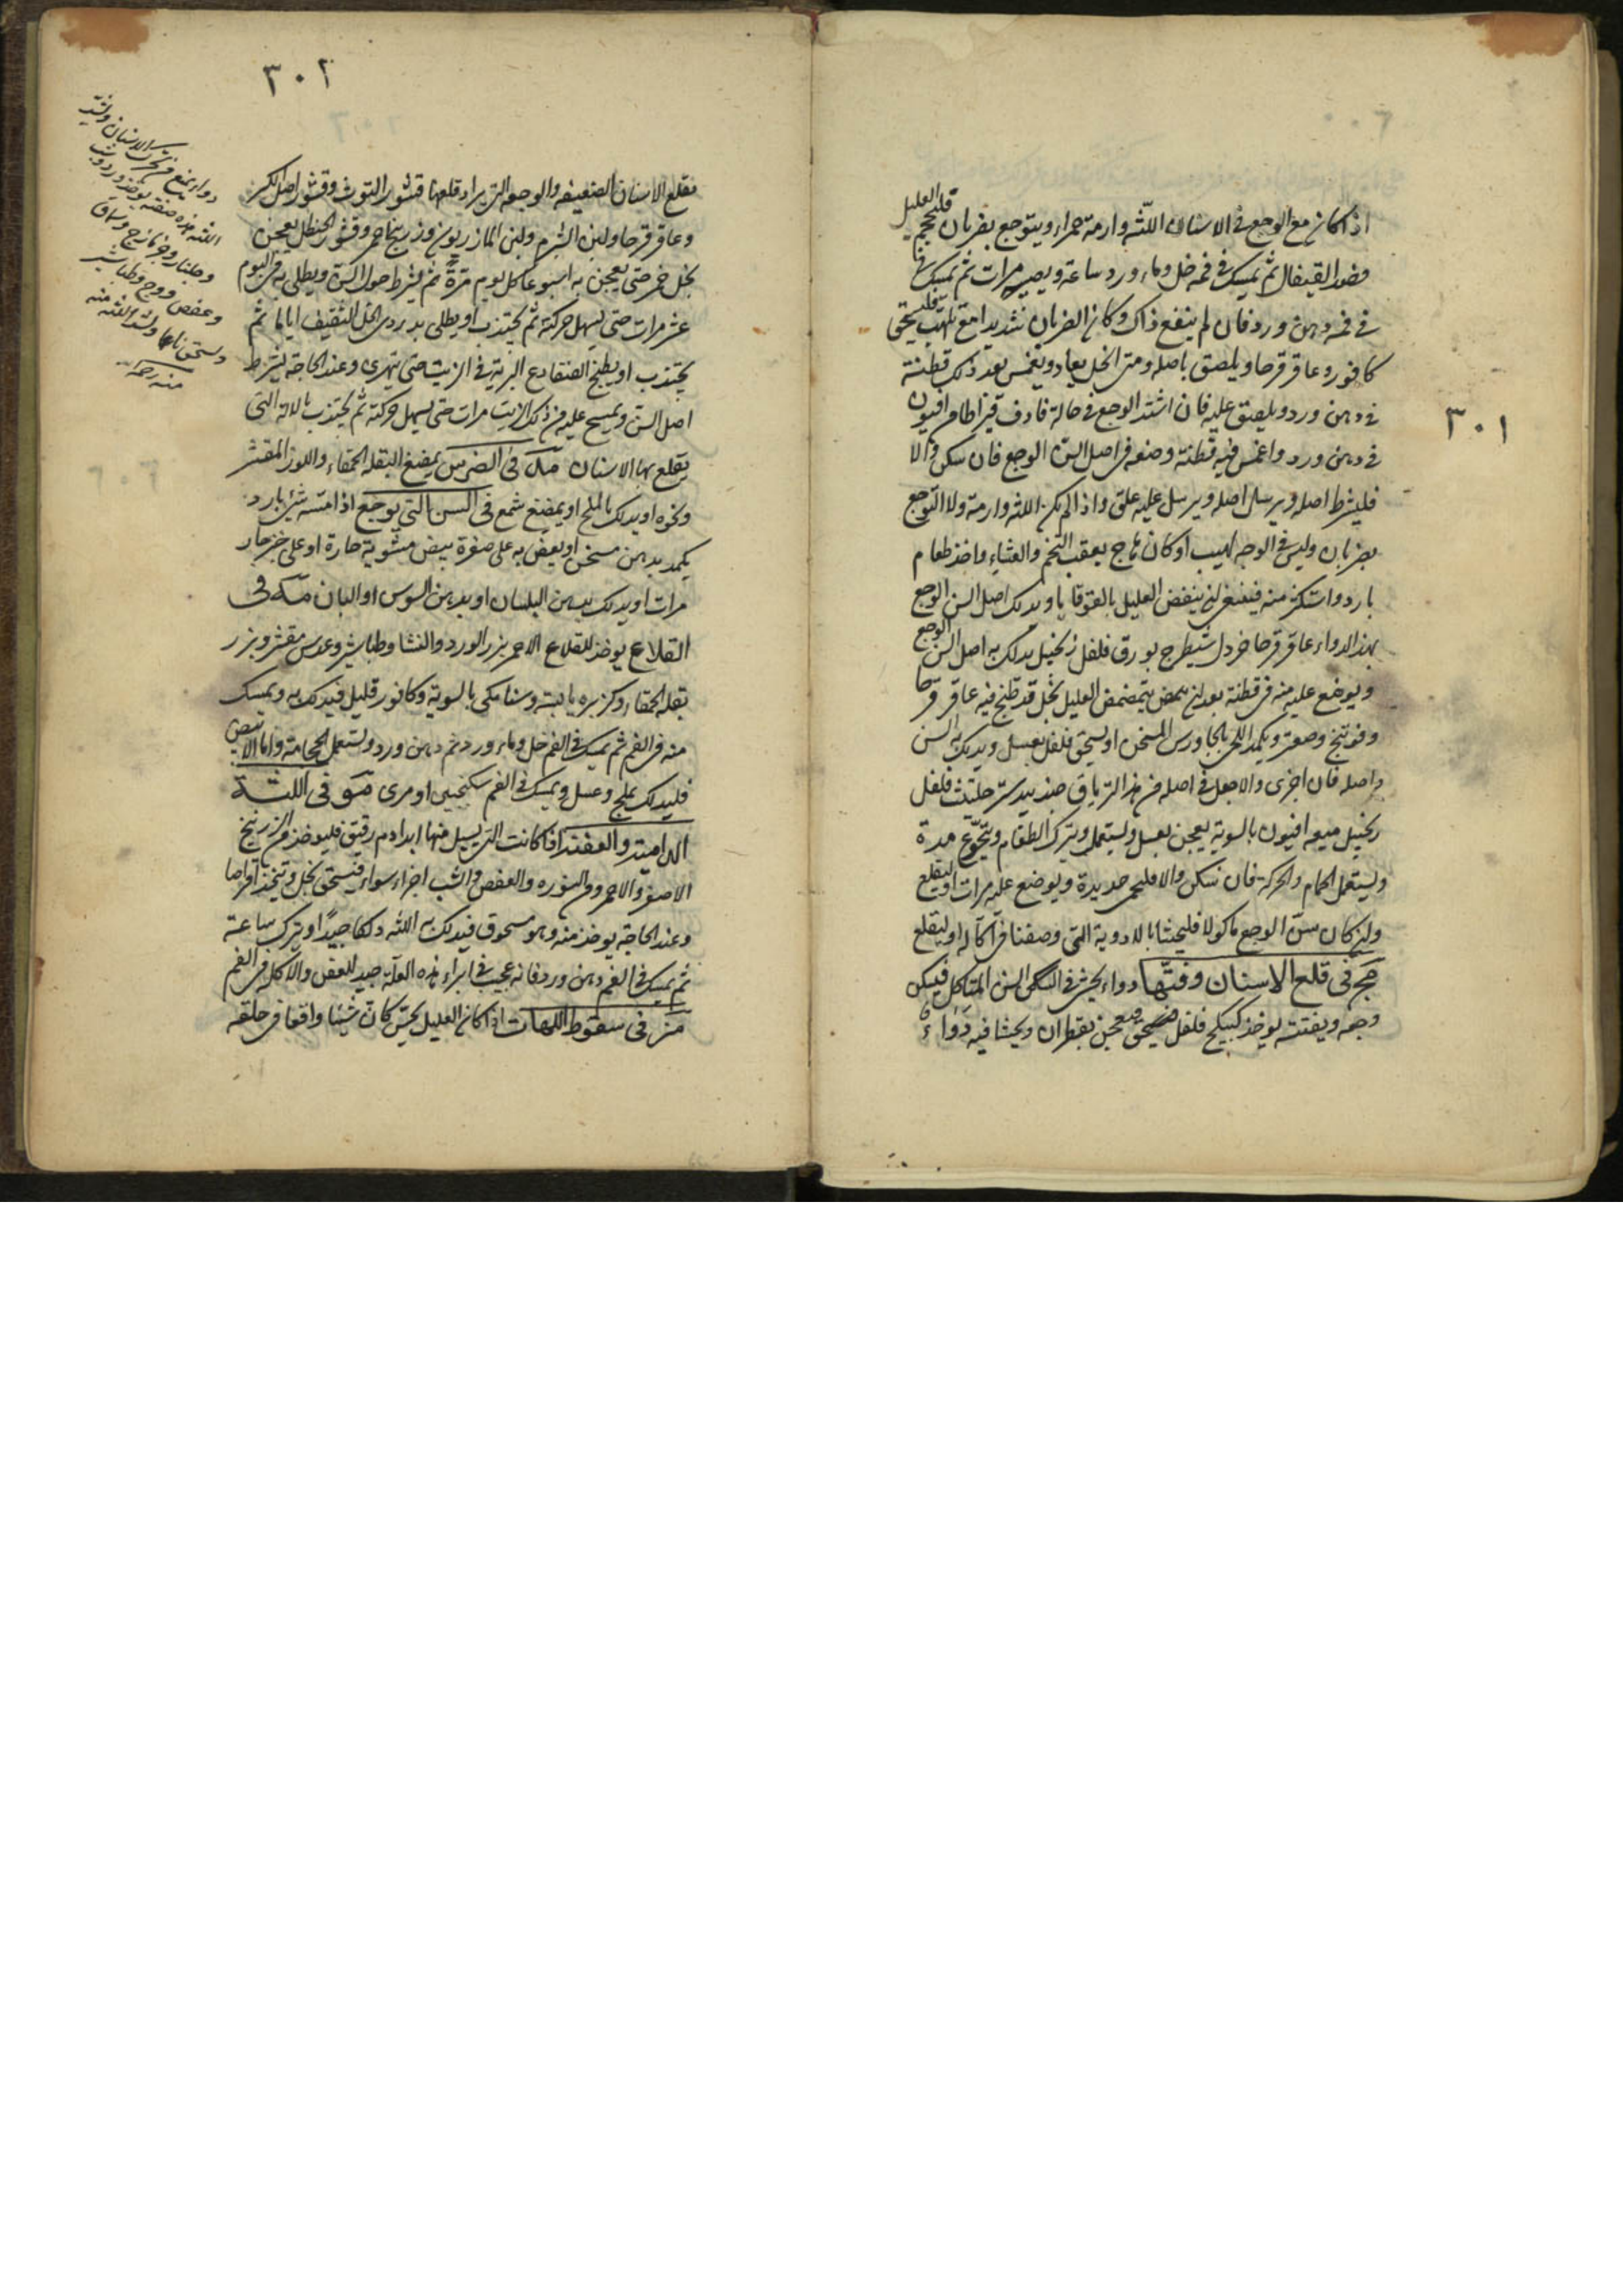 ٣٠١
اذا كان مع الوجع فى الاسنان اللثه وارمة حمراء ويتوجع بضربان فليحجم العليل
فصد القيفال ثم يمسك فى فمه خل وماء ورد ساعة ويصير مرات ثم يمسك
فى فمه دهن ورد فان لم ينفع ذلك وكان الضربان شديدا مع تلهب فليسحق
كافور وعاقرقرحا ويلصق باصله ومتى انحل يعاد ويغمس بعد ذلك قطنة
فى دهن ورد ويلصق عليه فان اشتد الوجع فى حالة فادف قيراطا من افيون
فى دهن ورد واغمس فيه قطنة وضعه فى اصل السن الوجع فان سكن والا
فليشرط اصله ويرسل اصله ويرسل عليه علق واذا لم يكن اللثه وارمة ولا التوجع
بضربان وليس فى الوجه لهيب او كان هاج بعقب التخم والعشاء واخذ طعام
بارد واستكثر منه فينبغى ان ينفض العليل بالقوقايا ويدلك اصل السن الوجع
بهذا الدواء عاقرقرحا خردل شيطرج بورق فلفل زنجبيل يدلك به اصل السن الوجع
ويوضع عليه منه فى قطنة بعد ان يمضمض يتمضمض العليل بخل قد طبخ فيه عاقرقرحا
وفوتنج وصعتر ويكمد اللحى بالجاورس المسخن او يسحق فلفل بعسل ويدلك به السن
واصله فان اجزى والا جعل فى اصله من هذا الترياق جندبيدستر حلتيت فلفل
زنجبيل ميعه افيون بالسوية يعجن بعسل ويستعمل ويترك الطعام ويتجوع مدة
ويستعمل الحمام والحركة فان سكن والا فليحمى حديدة ويوضع عليه مرات او ليقلع
وان كان سن الوجع ماكولا فليحشا بالادوية التى وصفنا فى آكاله او ليقلع
فى قلع الاسنان وفتها دواء يحشى فى السن المتاكل فيسكن
وجعه ويفتته يوخذ كبيكج فلفل فيسحق ويعجن بقطران ويحشا فيه دواء
٣٠٢
يقلع الاسنان الضعيفه والوجعه التى يراد قلعها قشور التوث وقشور اصل الكبر
وعاقرقرحا ولبن الشبرم ولبن المازريون وزرنيخ احمر وقشور الحنظل يعجن
بخل خمر حتى يعجن به اسبوعا كل يوم مرة ثم يشرط حول السن ويطلى به فى اليوم
عشر مرات حتى يسهل حركته ثم يجتذب او يطلى بدردى الخل الثقيف اياما ثم
يجتذب او يطبخ الضفادع البريه فى الزيت حتى يتهرى وعند الحاجة يشرط
اصل السن ويمسح عليه من ذلك الزيت مرات حتى يسهل حركته ثم يجتذب بالالة التى
يقلع بها الاسنان فى الضرس يمضغ البقلة الحمقاء واللوز المقشر
ونحوه او يدلك بالملح او يمضغ شمع فى السن التى يوجع اذا مسه شئ بارد
يكمد بدهن مسخن او يعض به على صفرة بيض مشوية حارة او على خبز حار
مرات او يدلك بدهن البلسان او بدهن السوس او البان فى
القلاع يوخذ للقلاع الاحمر بزر الورد والنشا وطباشير وعدس مقشر وبزر
بقلة الحمقاء وكزبره يابسة وسنا مكى بالسوية وكافور قليل فيدلك به ويمسك
منه فى الفم ثم يمسك فى الفم خل وماء ورد ثم دهن ورد ويستعمل الحجامة واما الابيض
فليدلك بملح وعسل ويمسك فى الفم سكنجبين او مرى فى اللثة
الدامية والعفنة اذا كانت التى يسيل منها ابدا دم رقيق فليوخذ من الزرنيخ
الاصفر والاحمر والنوره والعفص والشب اجزاء سواء فيسحق بخل ويتخذ اقراصا
وعند الحاجة يوخذ منه وهو مسحوق فيدلك به اللثه دلكا جيدا ويترك ساعة
ثم يمسك فى الفم دهن ورد فانه عجيب فى ابراء هذه العلة جيد للعفن والاكله فى الفم
فى سقوط اللهاة اذا كان العليل يحس كان شيئا واقعا فى حلقه
دواء يمنع من تحرك الاسنان ويشد
اللثه هذه صفته يوخذ ورد وشب
وجلنار وجزمازج وسماق
وعفص ووج وطباشير
ويسحق ناعما ويشد اللثه منه
منه رحمه